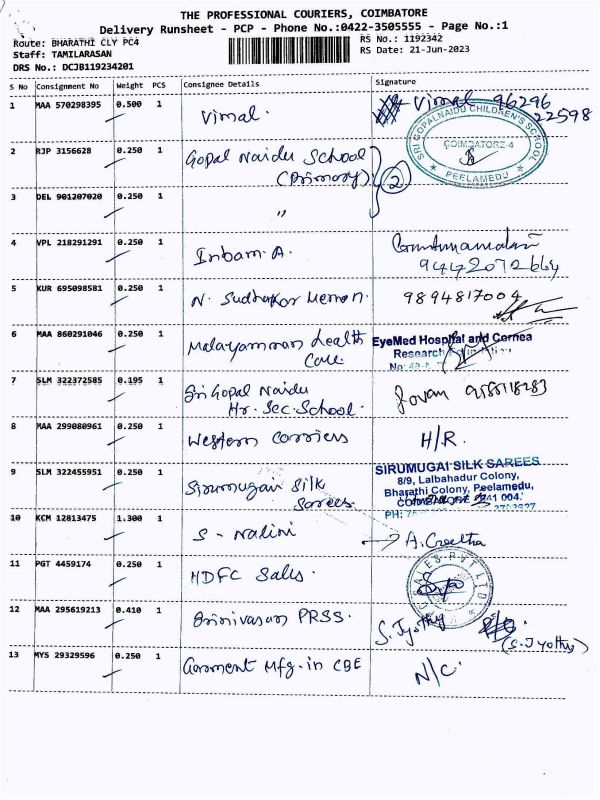 THE PROFESSIONAL COURIERS, COIMBATORE
Delivery Runsheet - PCP - Phone No.:0422-3505555 - Page No.:1
Route: BHARATHI CLY PC4
RS No.: 1192342
Staff: TAMILARASAN
RS Date: 21-Jun-2023
DRS No.: DCJB119234201
S No Consignment No Weight PCS Consignee Details Signature
1 MAA 570298395 0.500 1 Vimal. Vimal 96296
22598
SRI GOPALNAIDU CHILDREN'S SCHOOL
COIMBATORE-4
PEELAMEDU
2 RJP 3156628 0.250 1 Gopal Naidu School
(Primary) 2
3 DEL 901207020 0.250 1 "
4 VPL 218291291 0.250 1 Inbam. A.
9442072664
5 KUR 695098581 0.250 1 N. Sudhakar Menon. 9894817004
6 MAA 860291046 0.250 1 Malayamman Health
Care EyeMed Hospital and Cornea
Research
7 SLM 322372585 0.195 1 Sri Gopal Naidu
Hr. Sec. School.
8 MAA 299080961 0.250 1 Western Carriers H/R.
9 SLM 322455951 0.250 1 Sirumugai Silk
Sarees SIRUMUGAI SILK SAREES
8/9, Lalbahadur Colony,
Bharathi Colony, Peelamedu,
COIMBATORE 641 004.
PH:
10 KCM 12813475 1.300 1 S. Nalini → A. Geetha
11 PGT 4459174 0.250 1 HDFC Sales.
SALES PVT LTD
12 MAA 295619213 0.410 1 Srinivasan PRSS. S. Jyothy
(S. Jyothy)
13 MYS 29329596 0.250 1 Garment Mfg. in CBE N/C.